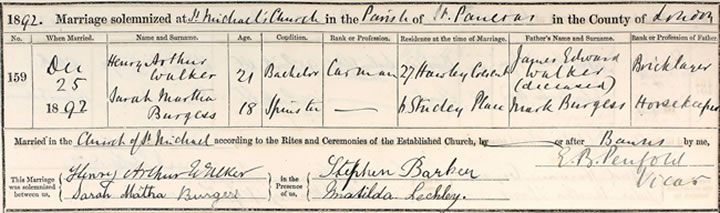 1892. Marriage solemnized at St. Michael's Church in the Parish of St. Pancras in the County of London
No. When Married. Name and Surname. Age. Condition. Rank or Profession. Residence at the time of Marriage. Father's Name and Surname. Rank or Profession of Father.
159 Dec 25 1892 Henry Arthur Walker 21 Bachelor Carman 27 Hawley Crescent James Edward Walker (deceased) Bricklayer
Sarah Martha Burgess 18 Spinster — 6 Stucley Place Mark Burgess Horsekeeper
Married in the Church of St. Michael according to the Rites and Ceremonies of the Established Church, by — or after Banns by me,
E. B. Penfold
Vicar
This Marriage was solemnized between us, Henry Arthur Walker in the Presence of us, Stephen Barker
Sarah Martha Burgess Matilda